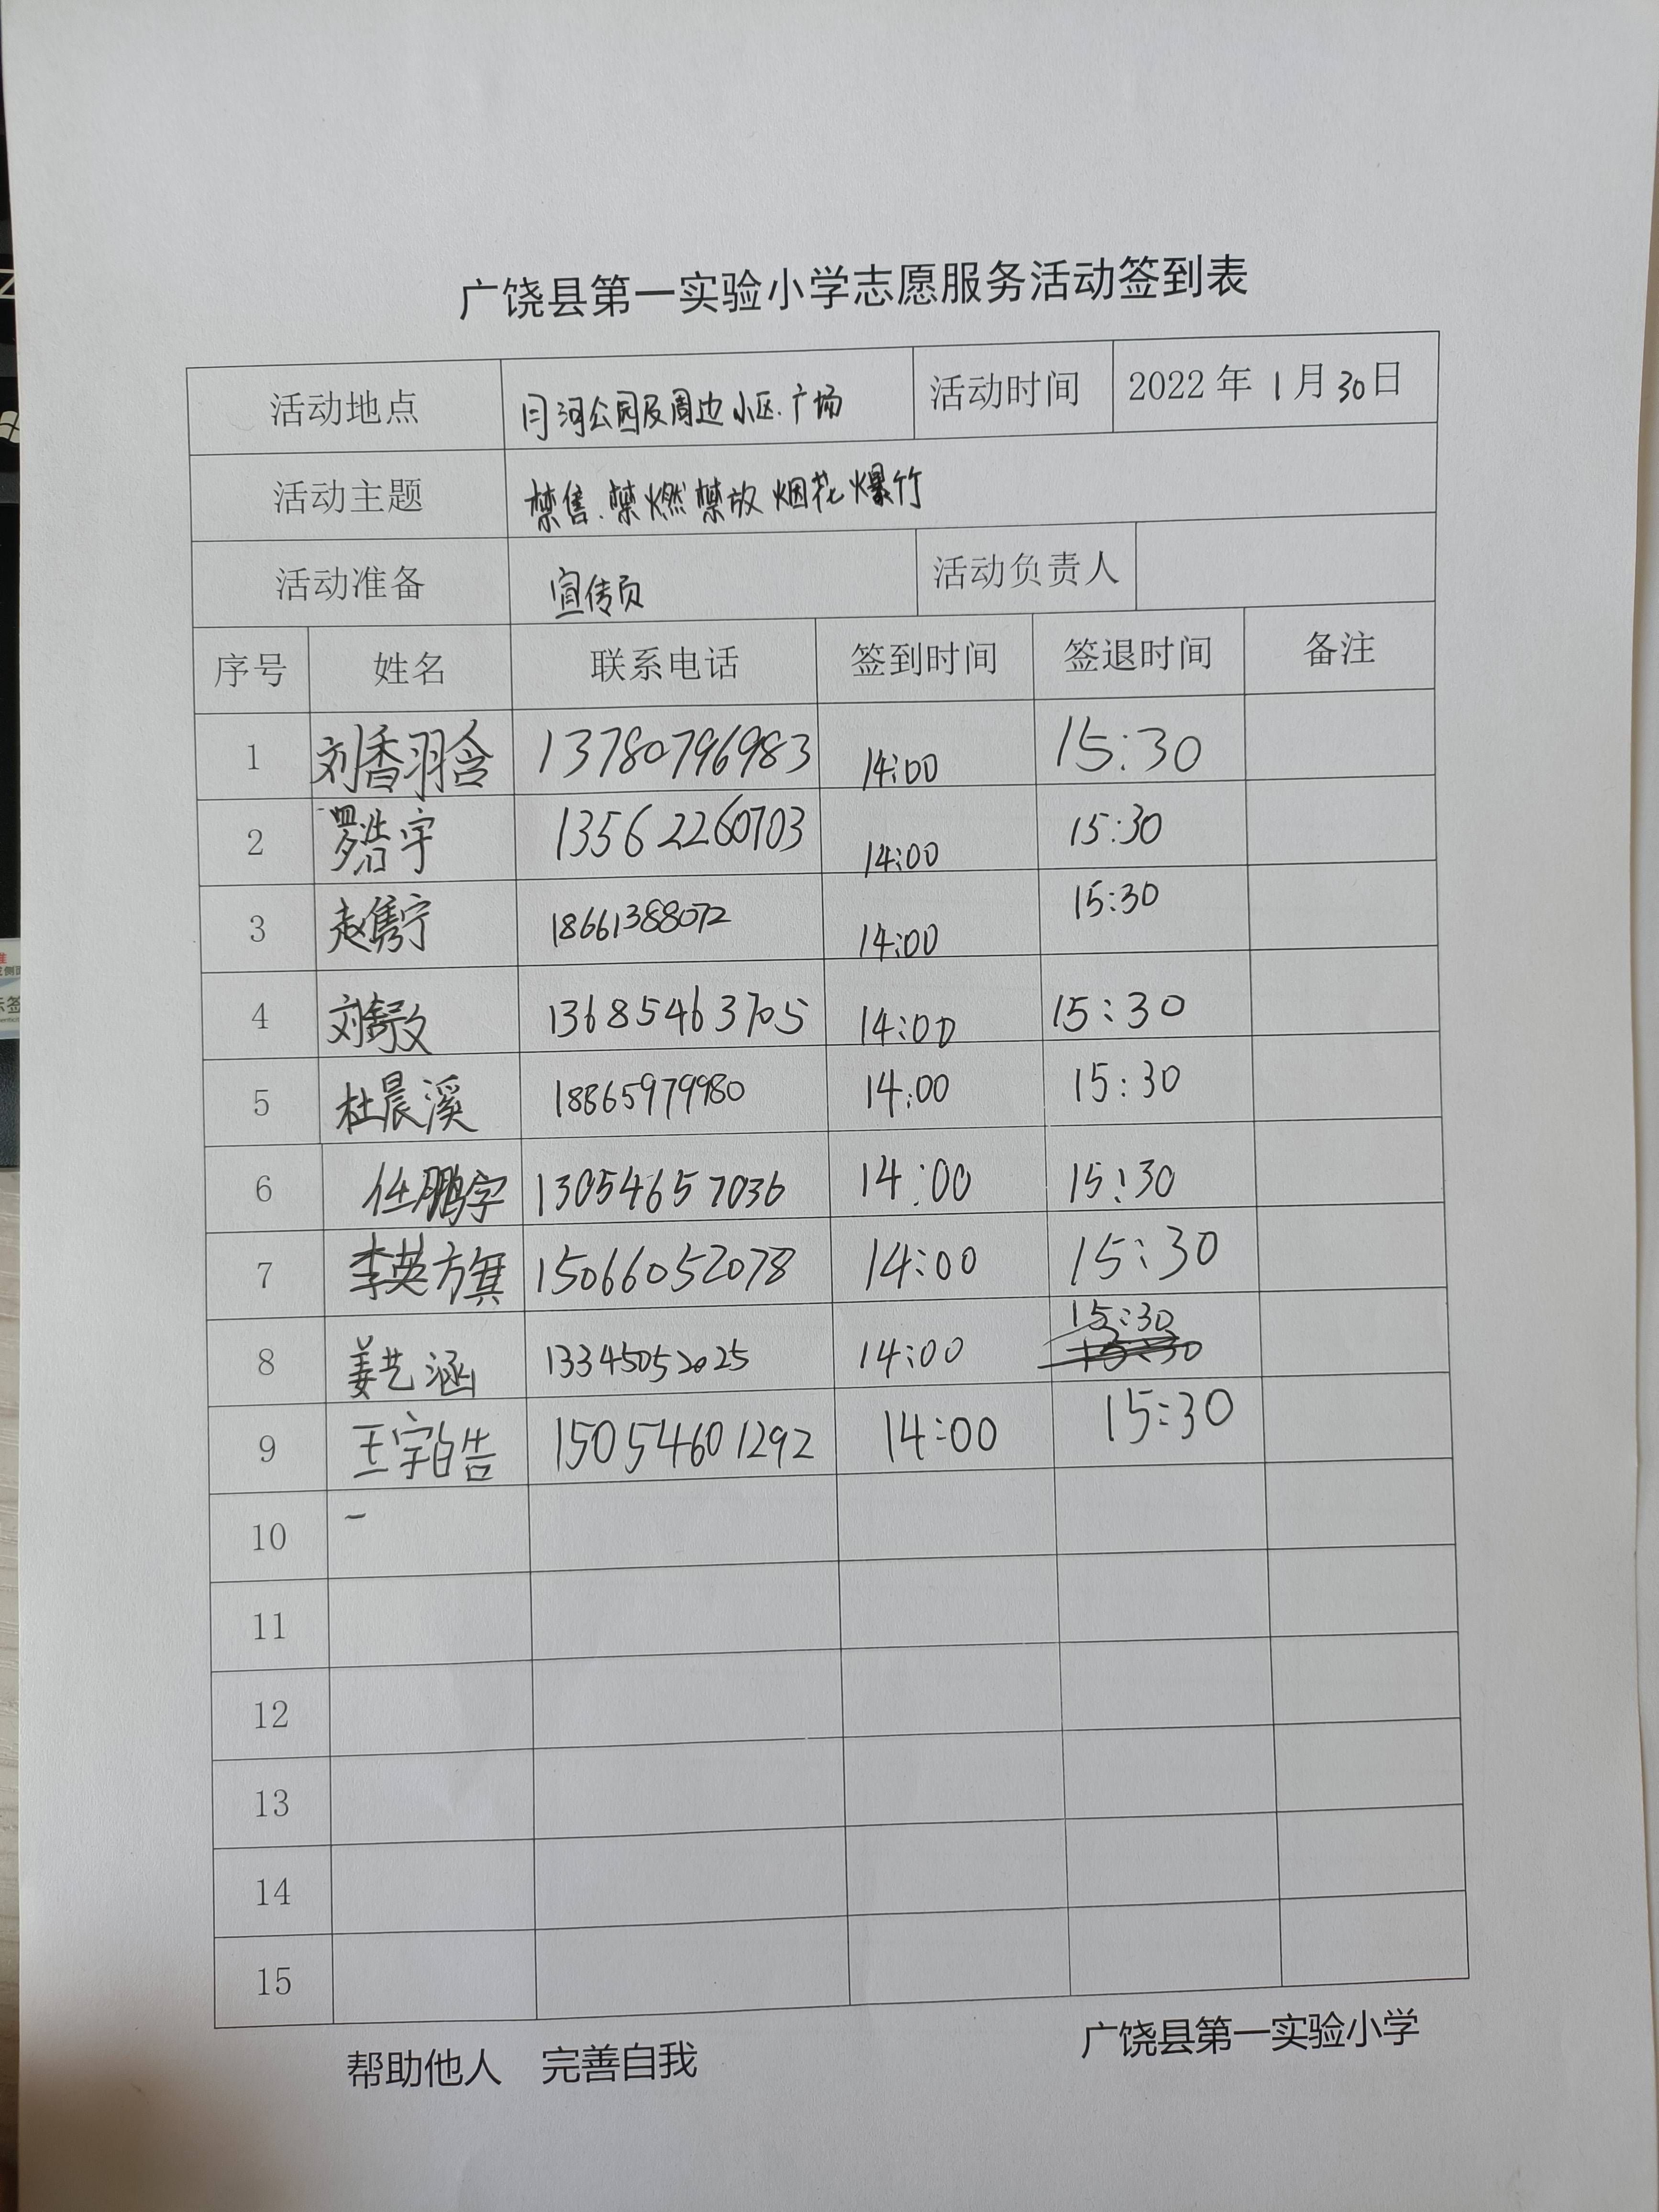 广饶县第一实验小学志愿服务活动签到表
活动地点 月河公园及周边小区.广场 活动时间 2022年1月30日
活动主题 禁售.禁燃禁放烟花爆竹
活动准备 宣传页 活动负责人
序号 姓名 联系电话 签到时间 签退时间 备注
1 刘香羽含 13780796983 14:00 15:30
2 罗浩宇 13562260703 14:00 15:30
3 赵隽宁 18661388072 14:00 15:30
4 刘舒文 13685463705 14:00 15:30
5 杜晨溪 18865979980 14:00 15:30
6 任鹏宇 13054657036 14:00 15:30
7 李英方旗 15066052078 14:00 15:30
8 姜艺涵 13345052025 14:00 15:30
9 王宇皓 15054601292 14:00 15:30
10
11
12
13
14
15
帮助他人 完善自我 广饶县第一实验小学